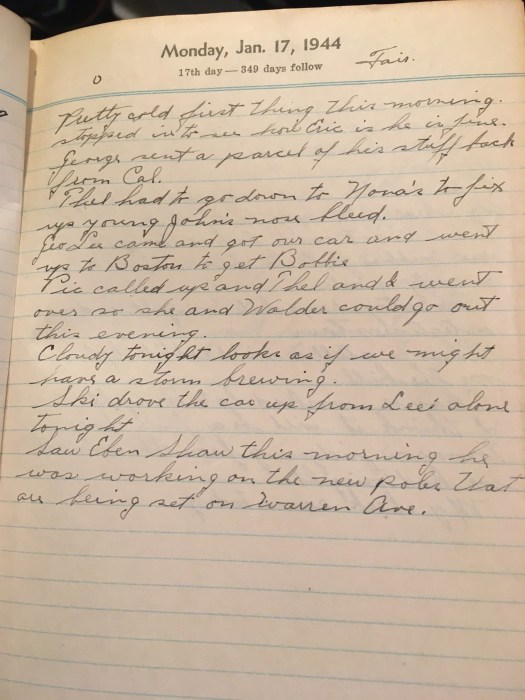 Monday, Jan. 17, 1944
17th day — 349 days follow
Fair.
0
Pretty cold first thing this morning.
stopped in to see how Eric is he is fine.
George sent a parcel of his stuff back
from Cal.
Thel had to go down to Nona's to fix
up young John's nose bleed.
Geo Lee came and got our car and went
up to Boston to get Bobbie
Pic called up and Thel and I went
over so she and Walder could go out
this evening.
Cloudy tonight looks as if we might
have a storm brewing.
Ski drove the car up from Lees alone
tonight
Saw Eben Shaw this morning he
was working on the new poles that
are being set on Warren Ave.